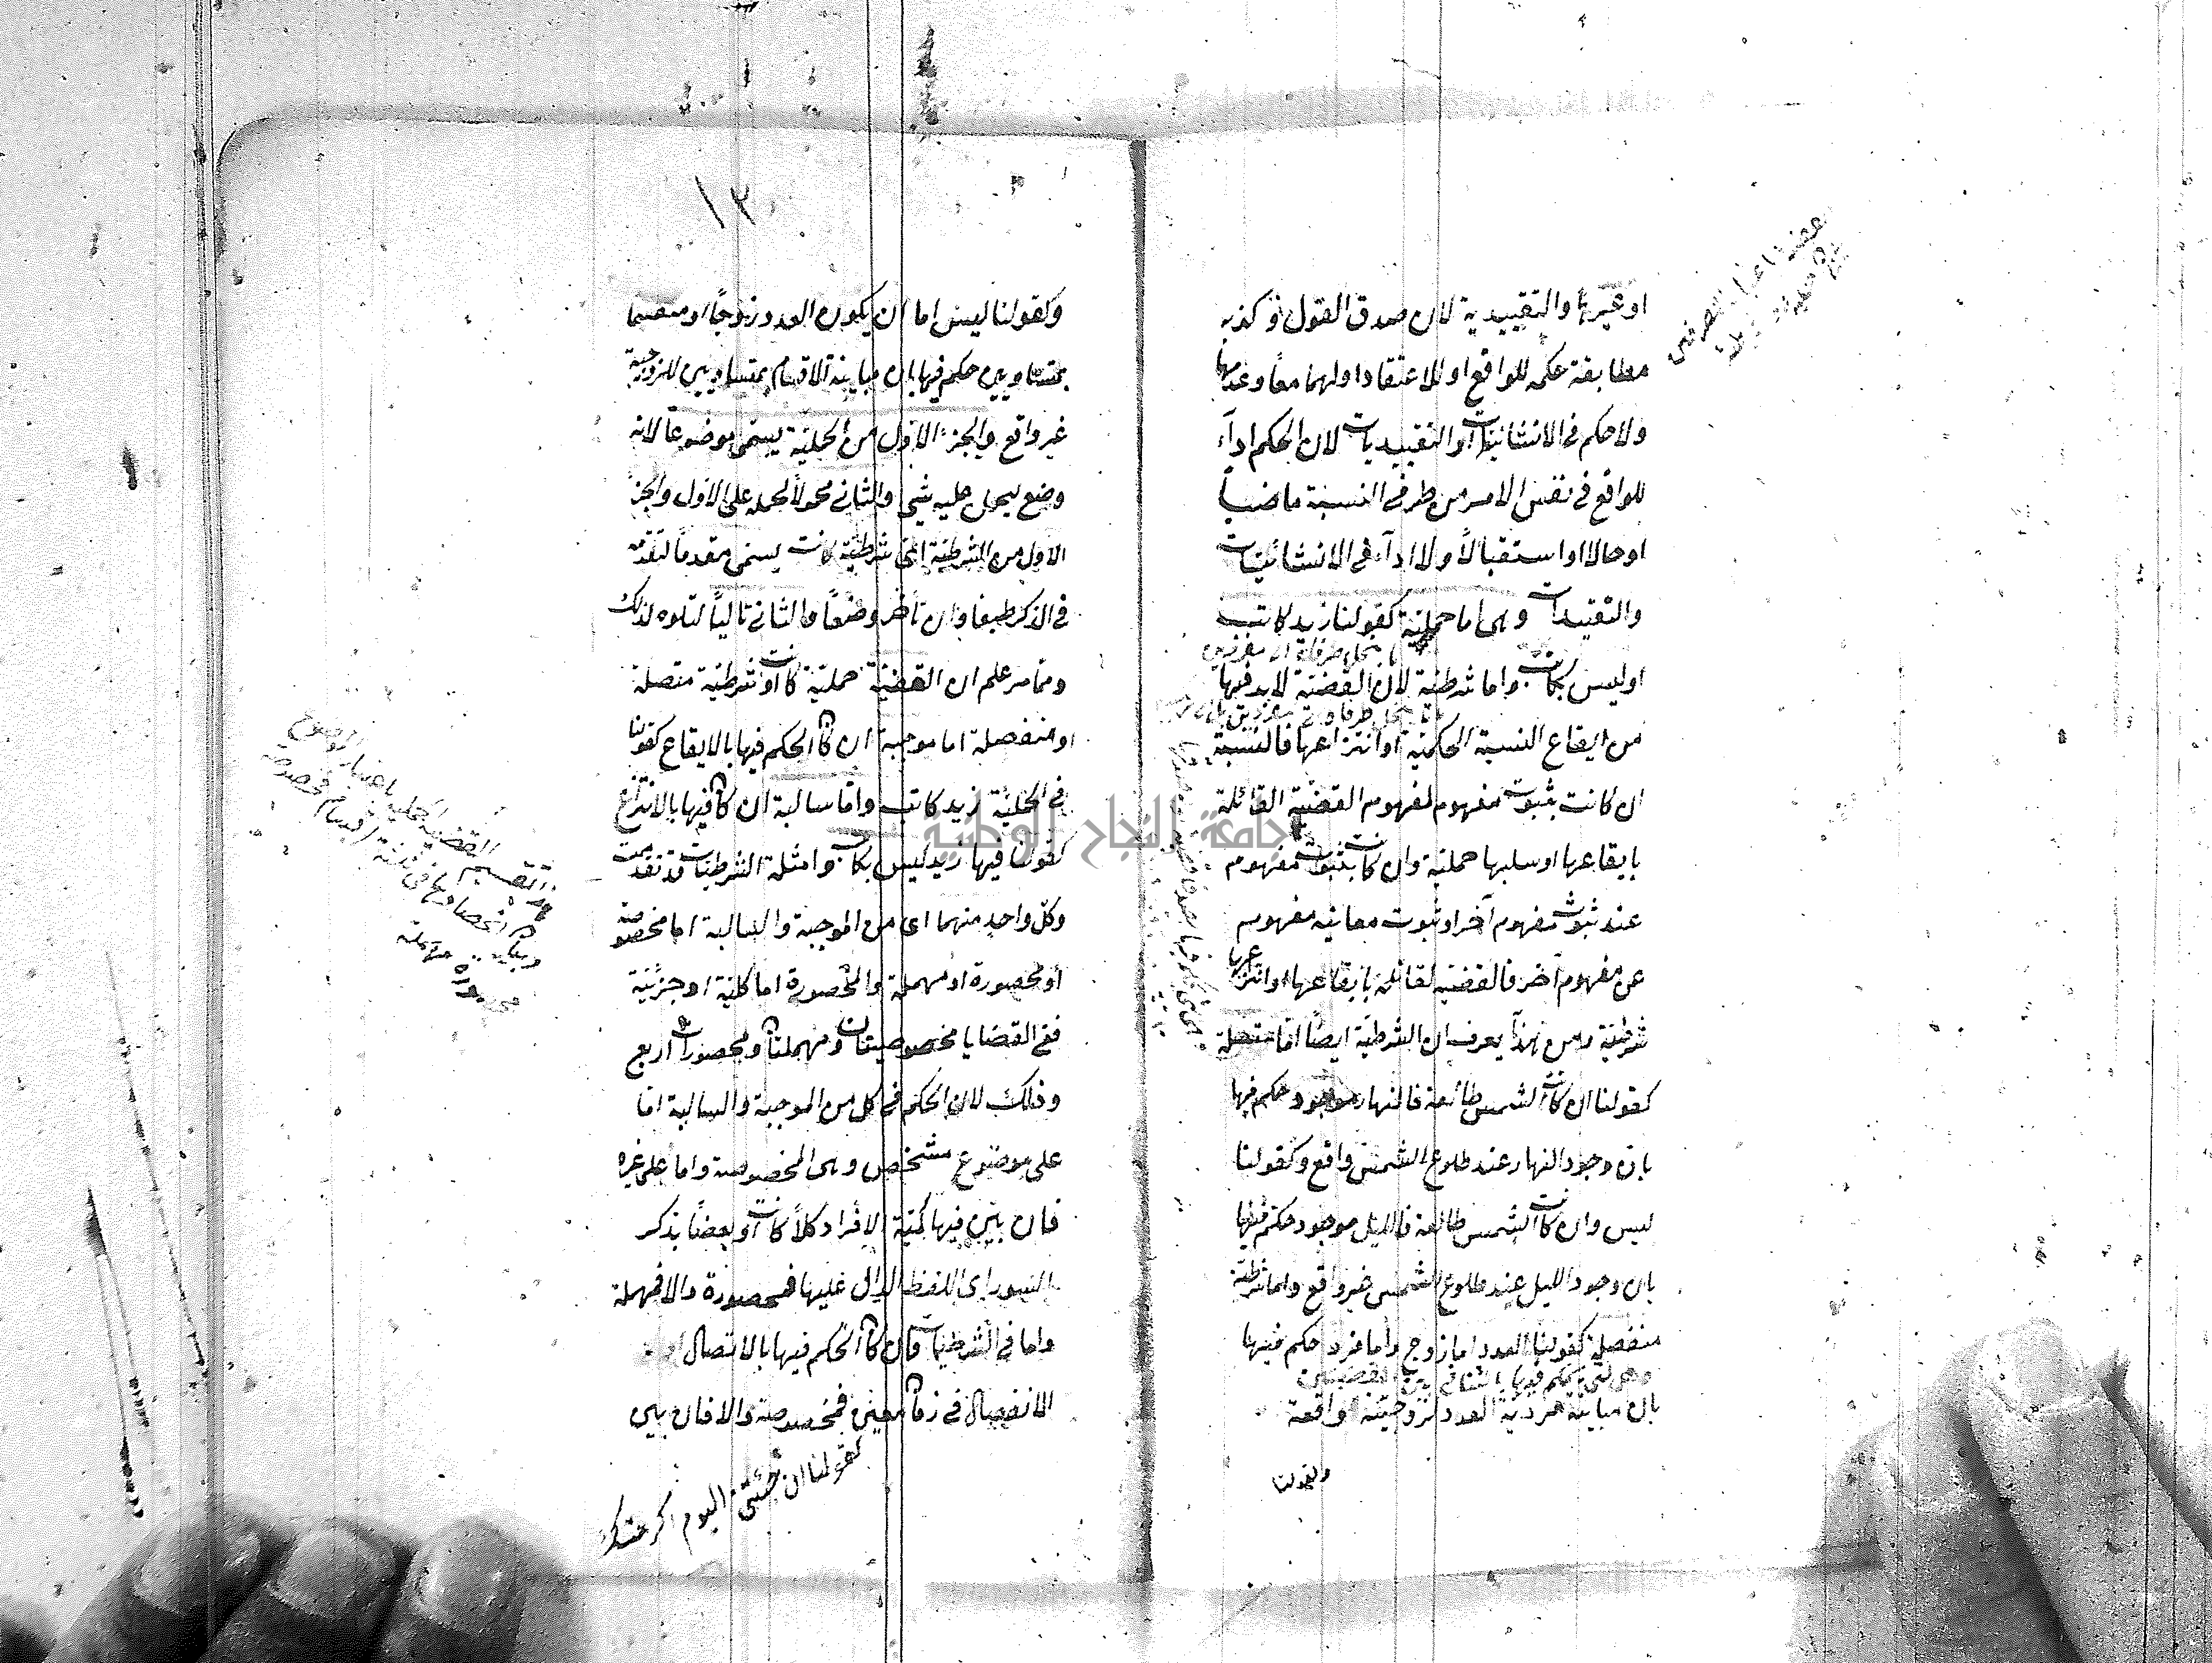 او غيرها والتقييدية لان صدق القول او كذبه
مطابقة حكمه للواقع او للاعتقاد او لهما معا وعدمها
ولا حكم في الانشائيات والتقييديات لان الحكم اداء
للواقع في نفس الامر من طرفي النسبة ماضيا
او حالا او استقبالا ولا اداء في الانشائيات
والتقييدات وهي اما حملية كقولنا زيد كاتب
او ليس بكاتب واما شرطية لان القضية لا بد فيها
من ايقاع النسبة الحكمية او انتزاعها فالنسبة
ان كانت بثبوت مفهوم لمفهوم القضية القائلة
بايقاعها او سلبها حملية وان كانت بثبوت مفهوم
عند ثبوت مفهوم آخر او ثبوت معاينه مفهوم
عن مفهوم آخر فالقضية لقائلة بايقاعها او انتزاعها
شرطية ومن هذا يعرف ان الشرطية ايضا اما متصلة
كقولنا ان كانت الشمس طالعة فالنهار موجود حكم فيها
بان وجود النهار عند طلوع الشمس واقع وكقولنا
ليس وان كانت الشمس طالعة فالليل موجود حكم فيها
بان وجود الليل عند طلوع الشمس غير واقع واما شرطية
منفصلة كقولنا العدد اما زوج واما فرد حكم فيها
وهي التي يحكم فيها بالتنافي بين القضيتين
بان مباينة فردية العدد لزوجيته واقعة
وكقولنا
١٢
وكقولنا ليس اما ان يكون العدد زوجا او منقسما
بمتساويين حكم فيها بان مباينة الاقسام بمتساويين للزوجية
غير واقع والجزء الاول من الحملية يسمى موضوعا لانه
وضع ليحمل عليه شيء والثاني محمولا لحمله على الاول والجزء
الاول من الشرطية اي شرطية كانت يسمى مقدما لتقدمه
في الذكر طبعا وان تأخر وضعا والثاني تاليا لتلوه لذلك
ومما مر علم ان القضية حملية كانت او شرطية متصلة
او منفصلة اما موجبة ان كان الحكم فيها بالايقاع كقولنا
في الحملية زيد كاتب واما سالبة ان كان فيها بالانتزاع
كقولنا فيها زيد ليس بكاتب وامثلة الشرطيات قد تقدمت
وكل واحد منهما اي من الموجبة والسالبة اما مخصوصة
او محصورة او مهملة والمحصورة اما كلية او جزئية
ففي القضايا مخصوصيتان ومهملتان ومحصورات اربع
وذلك لان الحكم في كل من الموجبة والسالبة اما
على موضوع مشخص وهي المخصوصة واما على غيره
فان بين فيها كمية الافراد كلا كانت او بعضا بذكر
السور اي اللفظ الدال عليها فمحصورة والا فمهملة
واما في الشرطيات فان كان الحكم فيها بالاتصال او
الانفصال في زمان معين فمخصوصة والا فان بين
كقولنا ان جئتني اليوم اكرمتك